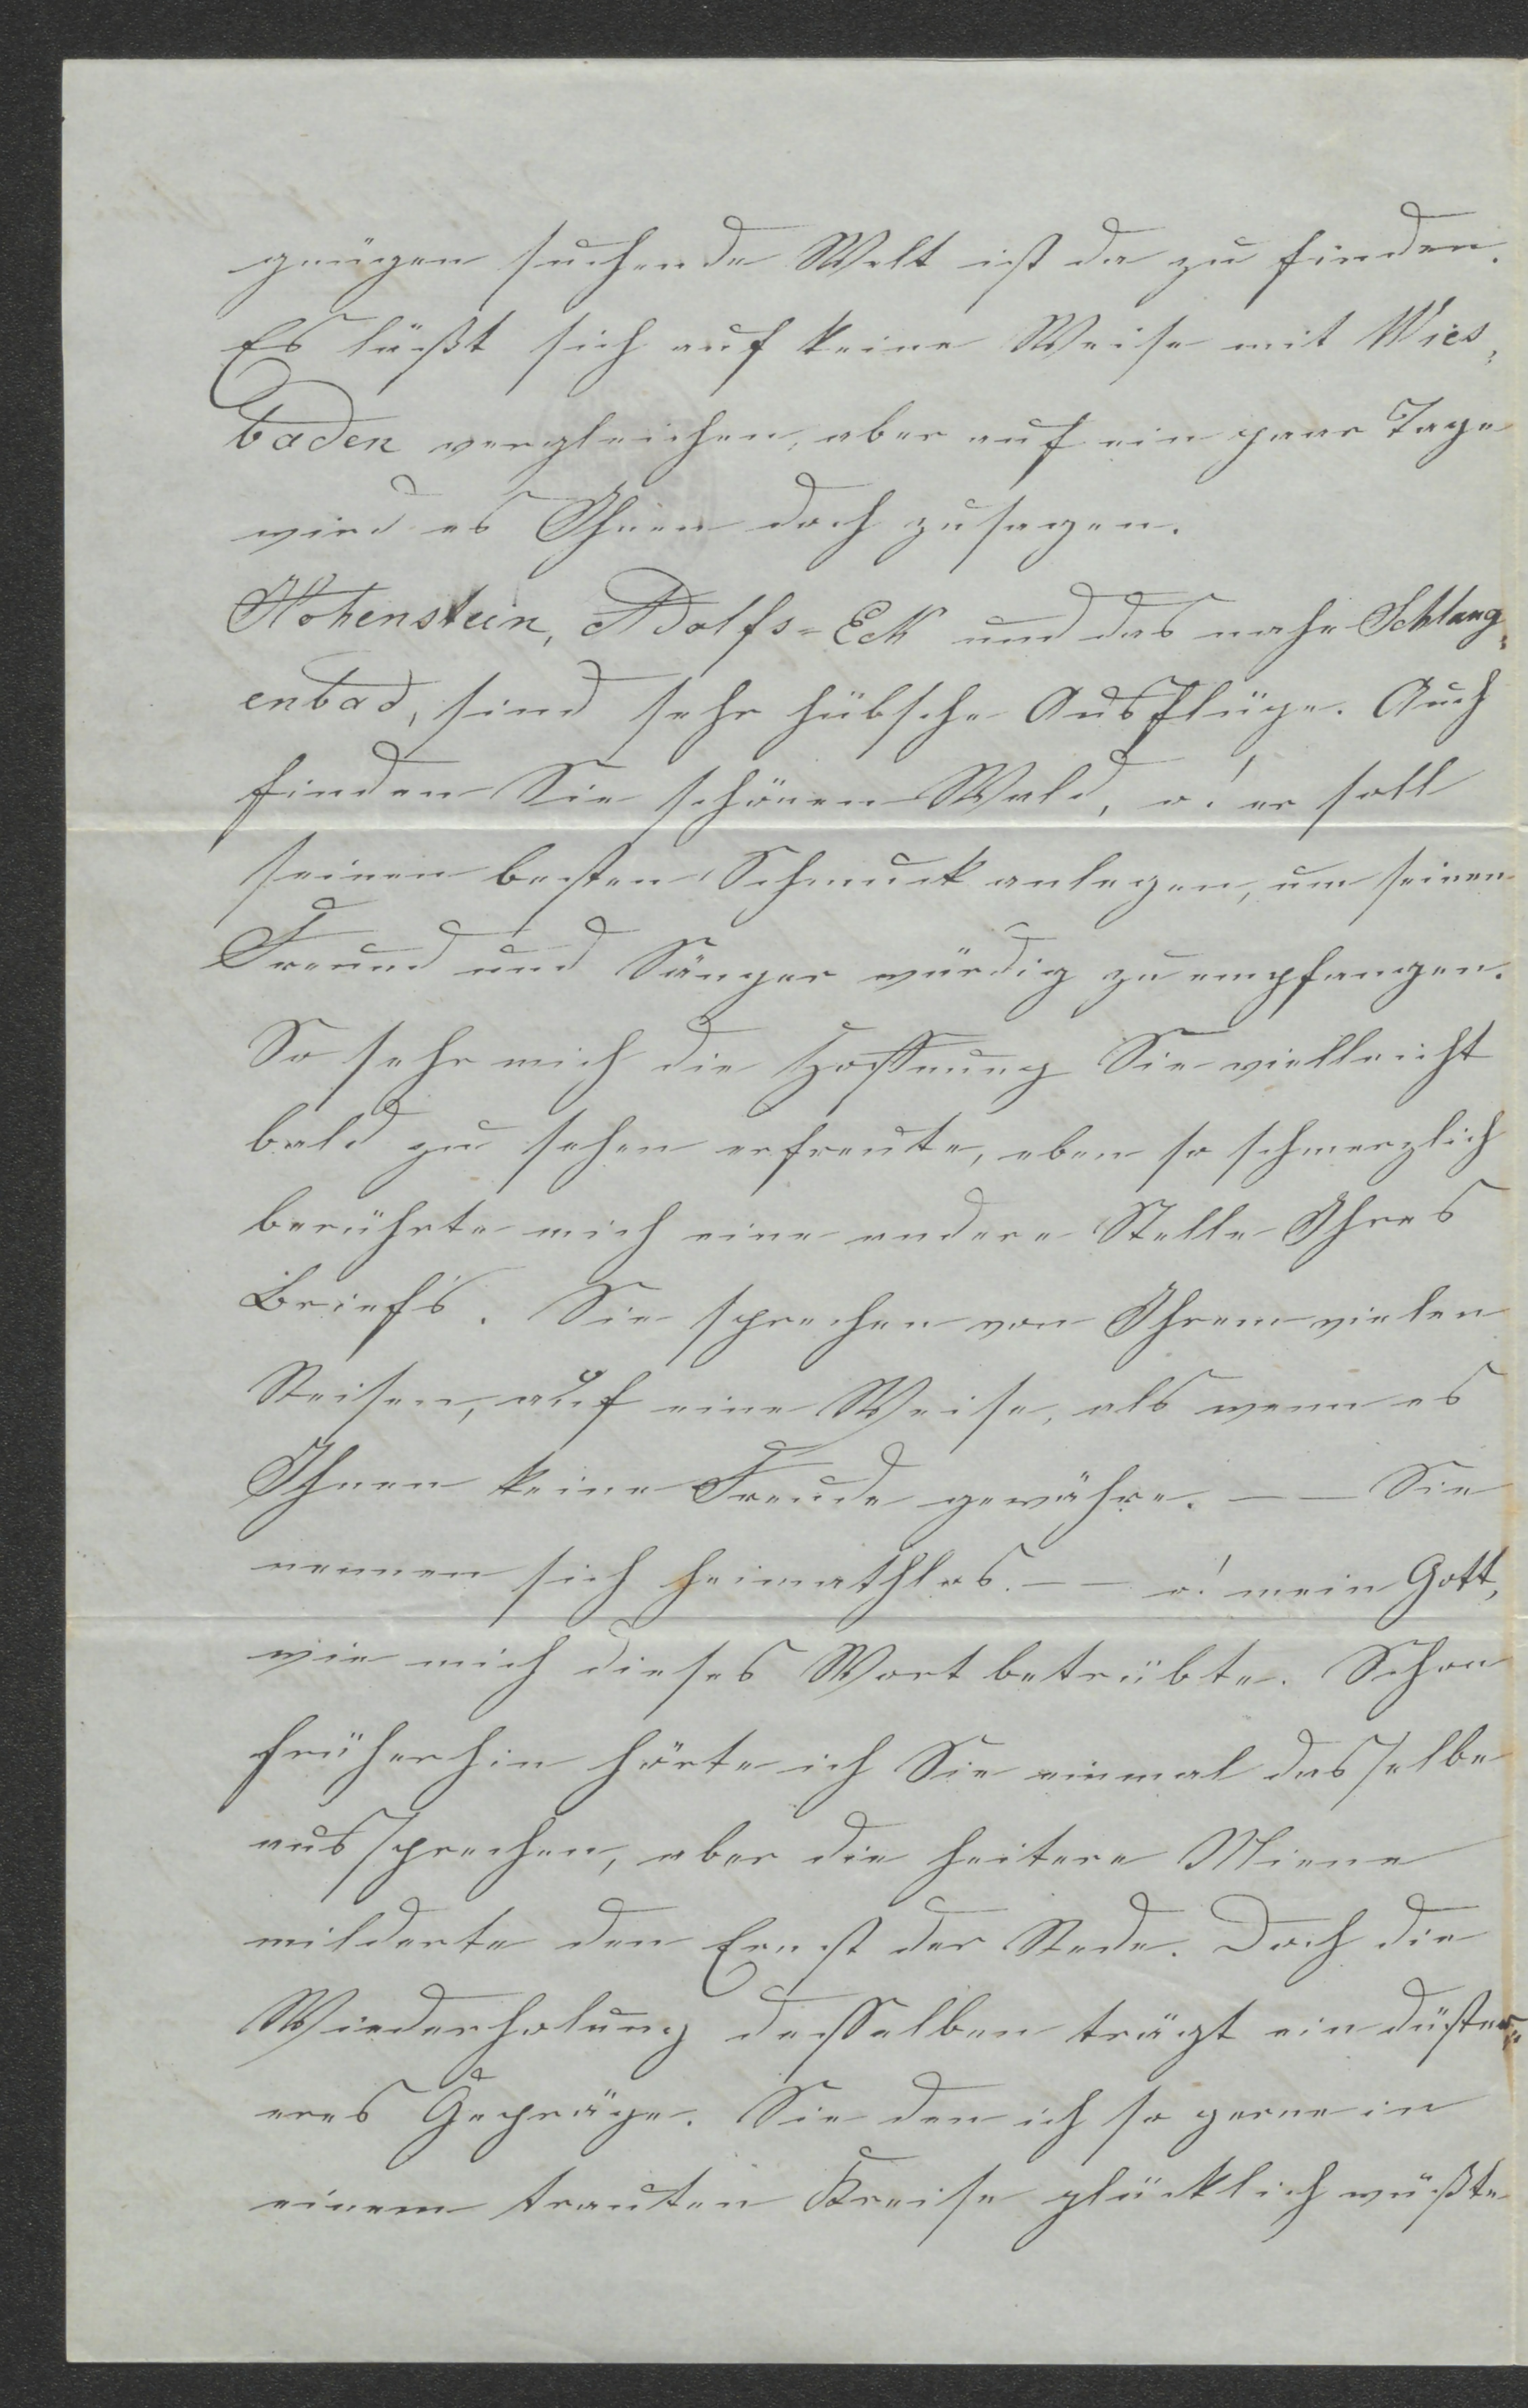 gnügen suchende Welt ist da zu finden.
Es läßt sich auf keine Weise mit Wies¬
baden vergleichen, aber auf ein paar Tage
wird es Ihnen doch zusagen.
Hohenstein, Adolfs-Eck und das nahe Schlang¬
enbad, sind sehr hübsche Ausflüge. Auch
finden Sie schönen Wald, o! er soll
seinen besten Schmuck anlegen, um seinen
Freund und Sänger würdig zu empfangen.
So sehr mich die Hoffnung Sie vielleicht
bald zu sehen erfreute, eben so schmerzlich
berührte mich eine andere Stelle Ihres
Brief's. Sie sprechen von Ihrem vielen
Reisen, auf eine Weise, als wenn es
Ihnen keine Freude gewähre. — — Sie
nennen sich heimathlos. — — o! mein Gott,
wie mich dieses Wort betrübte. Schon
früherhin hörte ich Sie einmal dasselbe
aussprechen, aber die heitere Miene
milderte den Ernst der Rede. Doch die
Wiederholung desselben trägt ein düster¬
eres Gepräge. Sie den ich so gerne in
einem trauten Kreise glücklich wüßte